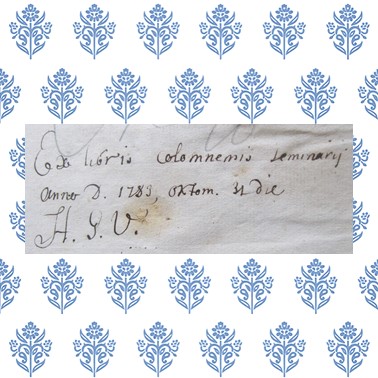 Ex libris Colomnemis seminarij
Anno D. 1783, oktom. 31 die
H. J. V.